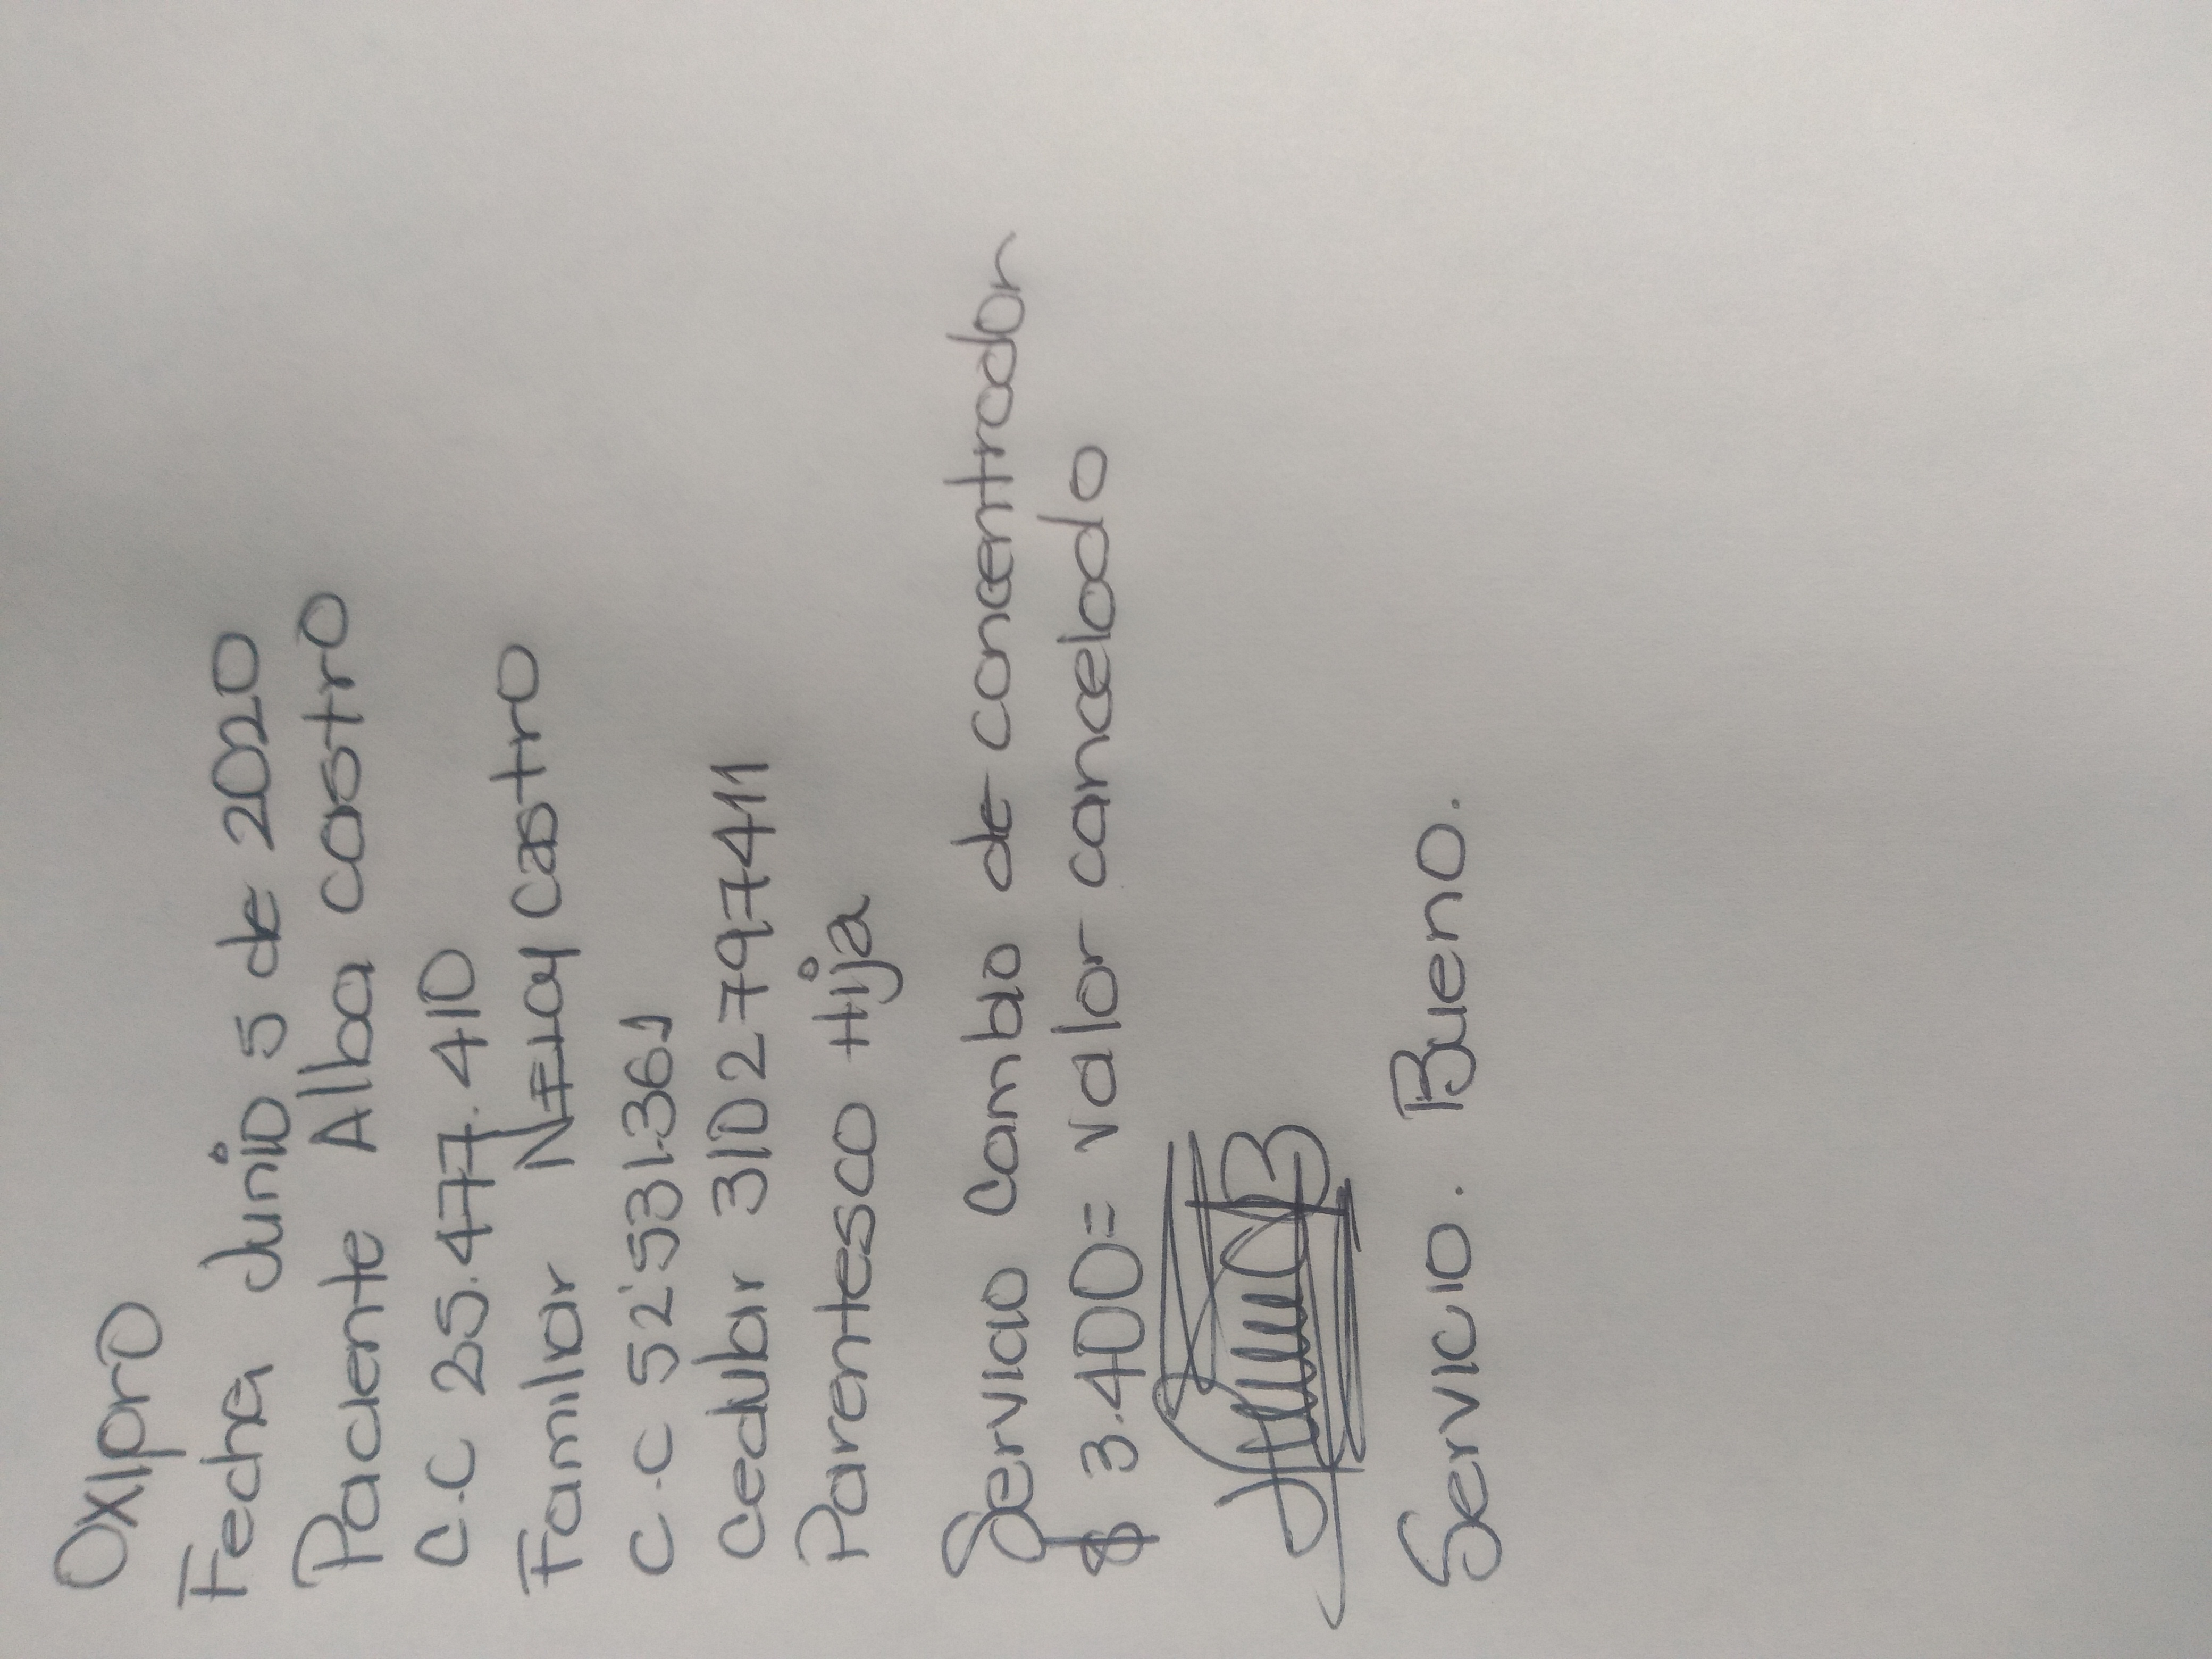 Oxipro
Fecha Junio 5 de 2020
Paciente Alba castro
C.C 25.477.410
Familiar castro
C.C 52'531.361
cedular 3102797411
Parentesco Hija
Servicio Cambio de concentrador
$ 3.400= valor cancelado
Servicio. Bueno.